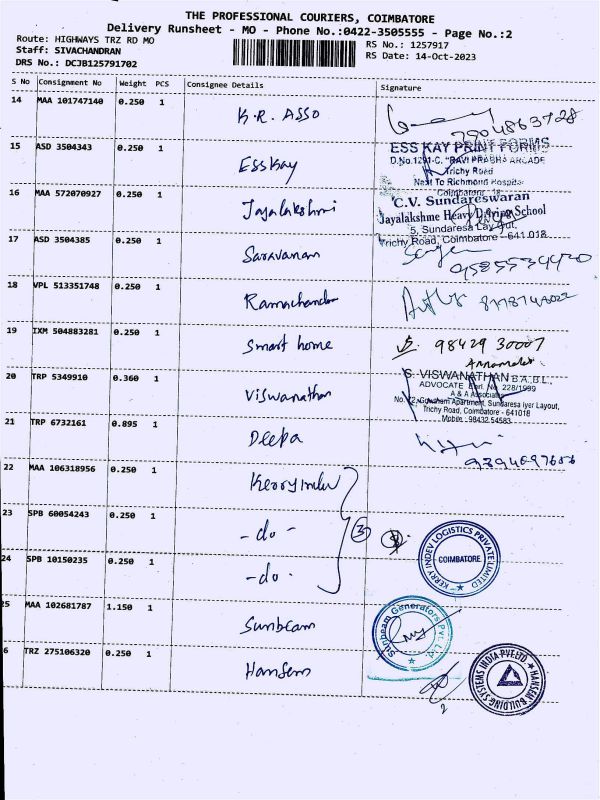 THE PROFESSIONAL COURIERS, COIMBATORE
Delivery Runsheet - MO - Phone No.:0422-3505555 - Page No.:2
Route: HIGHWAYS TRZ RD MO
RS No.: 1257917
Staff: SIVACHANDRAN
RS Date: 14-Oct-2023
DRS No.: DCJB125791702
S No Consignment No Weight PCS Consignee Details Signature
14 MAA 101747140 0.250 1 K.R. ASSO
15 ASD 3504343 0.250 1 Esskay
ESS KAY PRINT FORMS
D.No.1291-C, "RAVI PRABHA ARCADE
Trichy Road
Next To Richmond Hospital
Coimbatore - 18
16 MAA 572070927 0.250 1 Jayalakshmi
C.V. Sundareswaran
Jayalakshme Heavy Driving School
5, Sundaresa Lay Out,
Trichy Road, Coimbatore - 641 018
17 ASD 3504385 0.250 1 Saravanan
18 VPL 513351748 0.250 1 Ramachandr
19 IXM 504883281 0.250 1 Smart home 98429 30007
Annamalai
20 TRP 5349910 0.360 1 Viswanathan
S. VISWANATHAN B.A.B.L.,
ADVOCATE Enrl. No. 228/1999
A & A Associates
Gowtham Apartment, Sundaresa Iyer Layout,
Trichy Road, Coimbatore - 641018
Mobile : 98432 54583
21 TRP 6732161 0.895 1 Deepa
22 MAA 106318956 0.250 1 Kerry indev
23 SPB 60054243 0.250 1 - do - 3
KERRY INDEV LOGISTICS PRIVATE LIMITED
COIMBATORE
24 SPB 10150235 0.250 1 - do -
25 MAA 102681787 1.150 1 Sunbeam
Sunbeam Generators Pvt. Ltd.
6 TRZ 275106320 0.250 1 Hansem
HANSEM BUILDING SYSTEMS INDIA PVT LTD
2